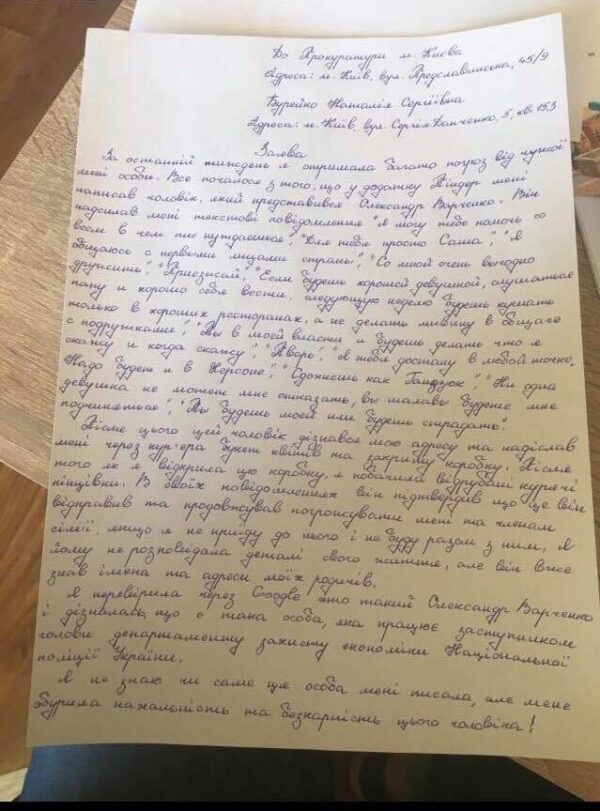 До Прокуратури м. Києва
Адреса: м. Київ, вул. Предславинська, 45/9
Бурейко Наталія Сергіївна
Адреса: м. Київ, вул. Сергія Данченко, 5, кв. 153
Заява
За останній тиждень я отримала багато погроз від чужої
мені особи. Все почалося з того, що у додатку Тіндер мені
написав чоловік, який представився Олександр Варченко. Він
надсилав мені текстові повідомлення "Я могу тебе помочь со
всем в чем ты нуждаешься", "Для тебя просто Саша", "Я
общаюсь с первыми лицами страны", "Со мной очень выгодно
дружить", "Приезжай", "Если будешь хорошей девушкой, слушаться
папу и хорошо себя вести, следующую неделю будешь кушать
только в хороших ресторанах, а не делать мивину в общаге
с подружками", "Ты в моей власти и будешь делать что я
скажу и когда скажу", "Я тебя достану в любой точке,
Надо будет и в Херсоне", "Сдохнешь как Гандзюк", "Ни одна
девушка не может мне отказать, вы будете мне
подчиняться", "Ты будешь моей или будешь страдать".
Після цього цей чоловік дізнався мою адресу та надіслав
мені через кур'єра букет квітів та закриту коробку. Після
того як я відкрила цю коробку, я побачила відрубані курячі
кінцівки. В своїх повідомленнях він підтвердив що це він
відправив та продовжував погрожувати мені та членам
сім'ї, якщо я не прийду до нього і не буду разом з ним. Я
йому не розповідала деталі свого життя, але він вже
знав імена та адреси моїх родичів.
Я перевірила через Google хто такий Олександр Варченко
і дізналась, що є така особа, яка працює заступником
голови департаменту захисту економіки Національної
поліції України.
Я не знаю чи саме ця особа мені писала, але мене
обурила нахабність та безкарність цього чоловіка!